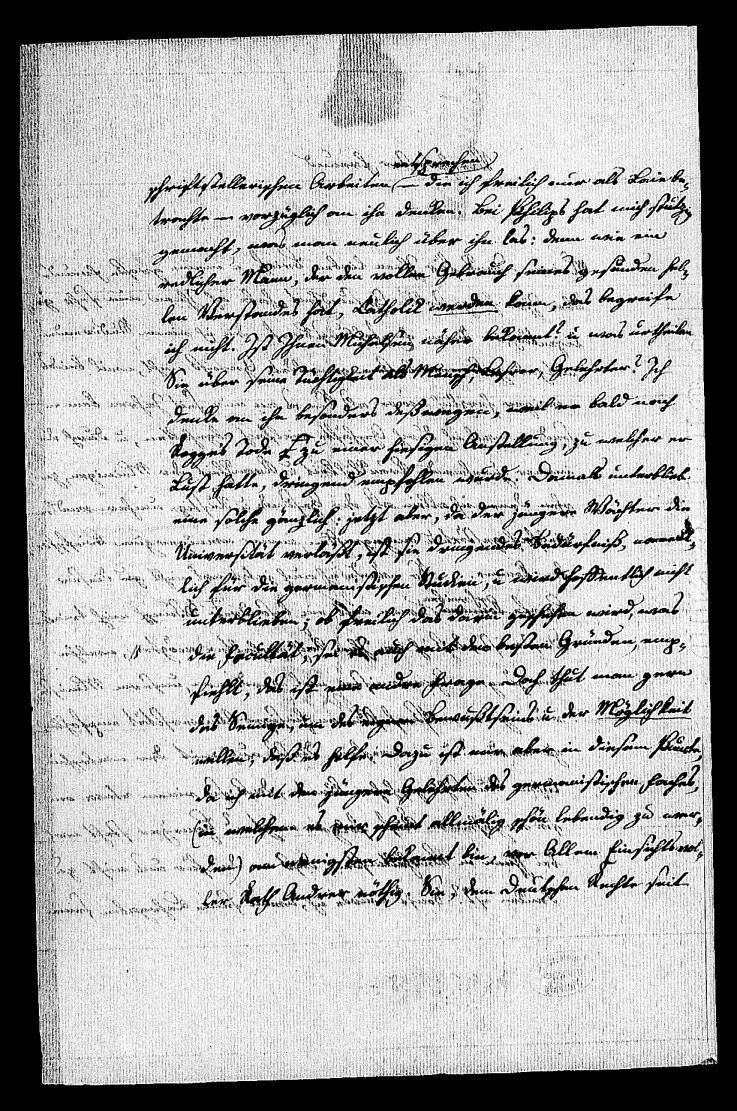 entsprechen
schriftstellerischen Arbeiten — die ich freilich nur als Laie be-
trachte — vorzüglich an ihn denken. Bei Philips hat mich stutzig
gemacht, was man neulich über ihn las: denn wie ein
redlicher Mann, der den vollen Gebrauch seines gesunden hel-
len Verstandes hat, Catholik werden kann, das begreife
ich nicht. Ist Ihnen näher bekannt? u was urtheilen
Sie über seine Tüchtigkeit als Mensch, Lehrer, Gelehrter? Ich
denke an ihn besonders deßwegen, weil er bald nach
Rogges Tode zu einer hiesigen Anstellung, zu welcher er
Lust hatte, dringend empfohlen wurde. Damals unterblieb
eine solche gänzlich: jetzt aber, da der jüngere Wächter die
Universität verläßt, ist sie dringendes Bedürfniß, nament-
lich für die germanistischen Studien, u wird hoffentlich nicht
unterbleiben; ob freilich das darin geschehen wird, was
die Facultät, sei es auch mit den besten Gründen, emp-
fiehlt, das ist eine andre Frage. Doch thut man gern
das Seinige, um des eignen Bewußtseins u der Möglichkeit
willen, daß es helfe. Dazu ist mir aber in diesem Puncte,
da ich mit den jüngern Gelehrten des germanistischen Faches,
(in welchem es mir scheint allmälig schön lebendig zu wer-
den) am wenigsten bekannt bin, vor Allem Einsichtsvol-
ler Rath Andrer nöthig. Sie, dem Deutschen Rechte seit